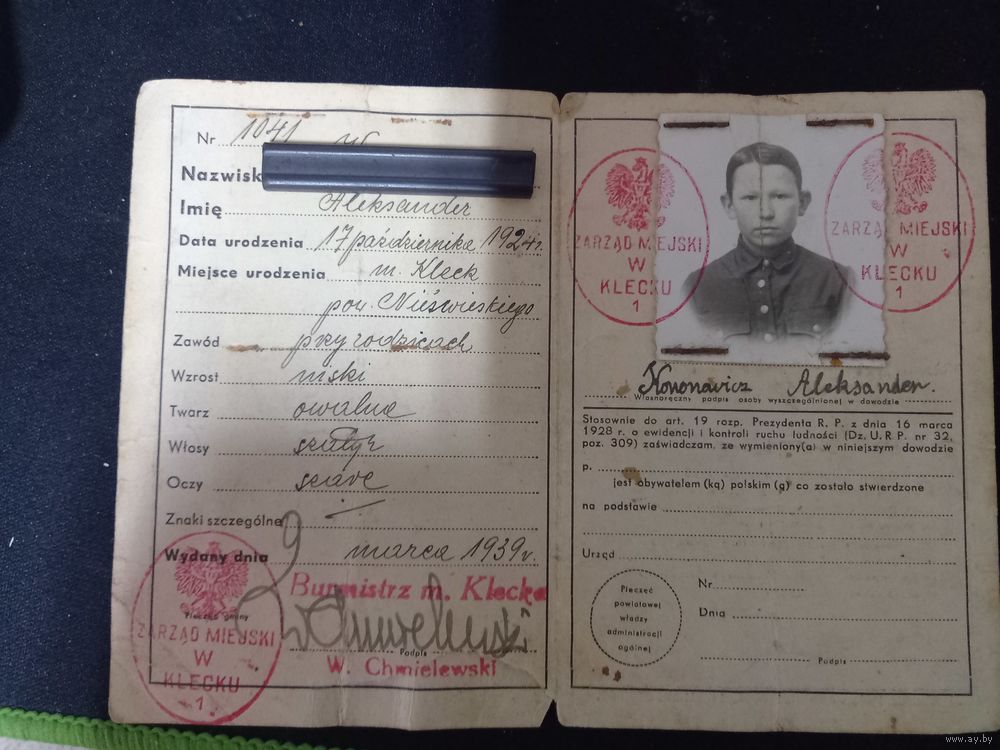 Nr 1041
Nazwisk
Imię Aleksander
Data urodzenia 17 października 1924 r.
Miejsce urodzenia m. Kleck
pow. Nieświeskiego
Zawód przy rodzicach
Wzrost niski
Twarz owalna
Włosy szatyn
Oczy szare
Znaki szczególne
Wydany dnia 9 marca 1939 r.
Burmistrz m. Klecka
Pieczęć gminy
ZARZĄD MIEJSKI
W
KLECKU
1
Podpis
W. Chmielewski
ZARZĄD MIEJSKI
W
KLECKU
1
ZARZĄD MIEJSKI
W
KLECKU
1
Kononowicz Aleksander.
Własnoręczny podpis osoby wyszczególnionej w dowodzie
Stosownie do art. 19 rozp. Prezydenta R. P. z dnia 16 marca
1928 r. o ewidencji i kontroli ruchu ludności (Dz. U. R. P. nr 32,
poz. 309) zaświadczam, że wymieniony(a) w niniejszym dowodzie
p.
jest obywatelem (ką) polskim (ą) co zostało stwierdzone
na podstawie
Urząd
Pieczęć
powiatowej
władzy
administracji
ogólnej
Nr
Dnia
Podpis
www.ay.by